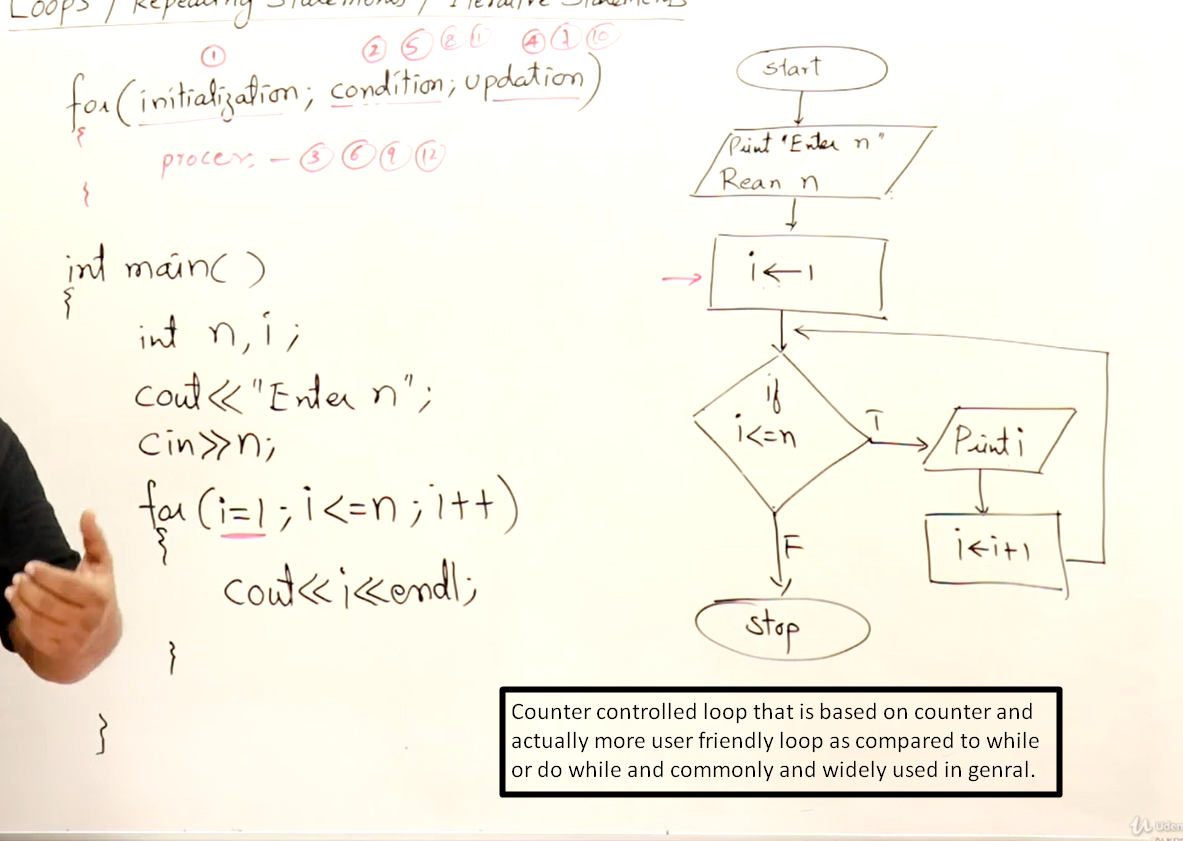 Loops / Repeating Statements / Iterative Statements
① ② ⑤ ⑧ ⑪ ④ ⑦ ⑩
for(initialization; condition; updation)
{
process - ③ ⑥ ⑨ ⑫
}
int main()
{
int n,i;
cout<<"Enter n";
cin>>n;
for(i=1;i<=n;i++)
{
cout<<i<<endl;
}
}
start
Print "Enter n"
Rean n
i←1
if
i<=n
T
Print i
i←i+1
F
stop
Counter controlled loop that is based on counter and
actually more user friendly loop as compared to while
or do while and commonly and widely used in genral.